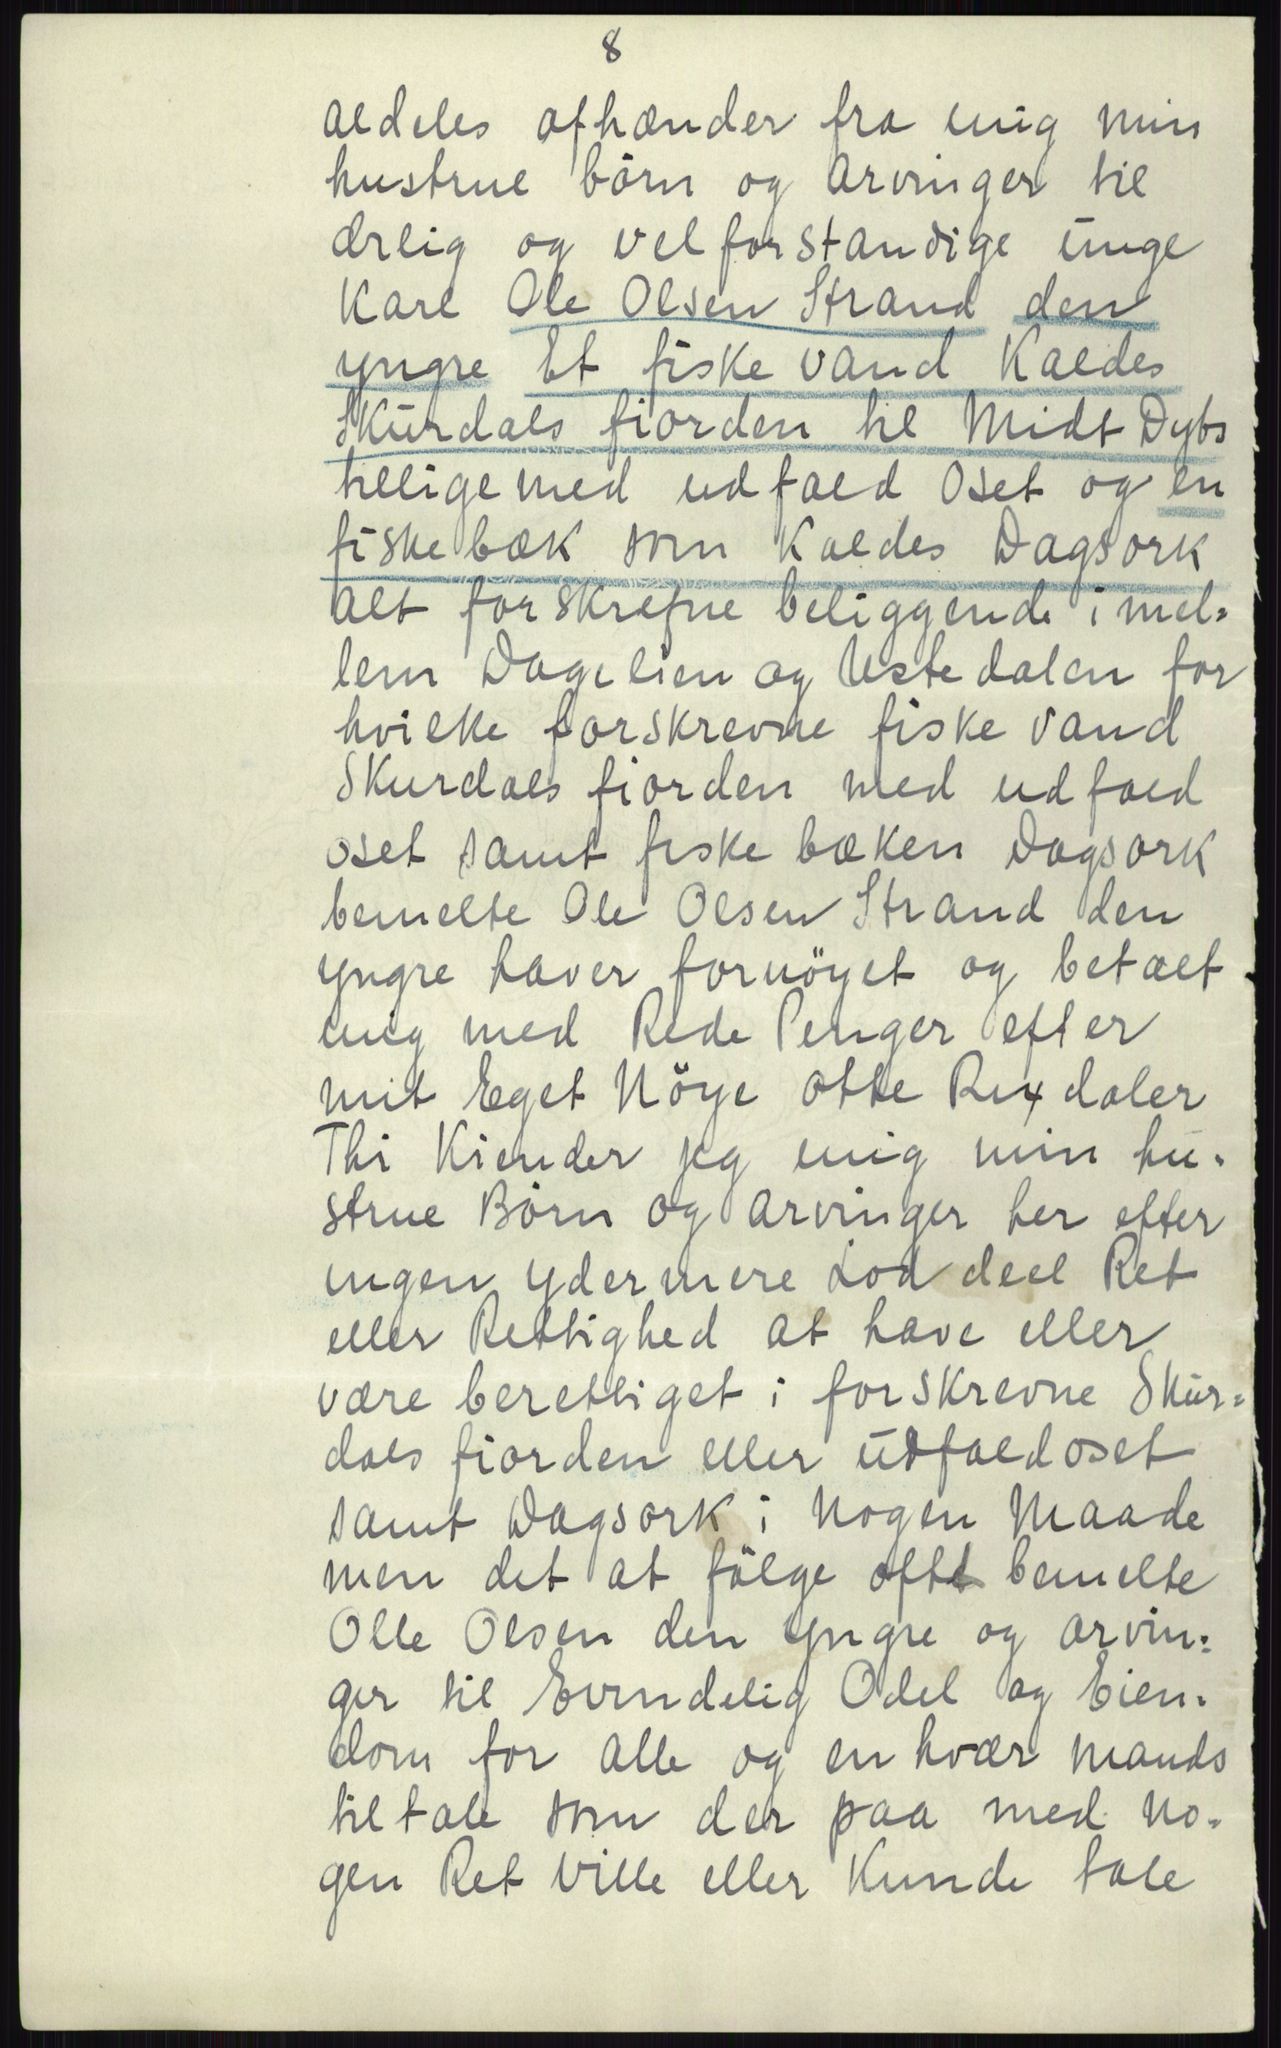 8
aldeles afhænder fra mig min
hustrue börn og arvinger til
ærlig og velforstandige unge
Karl Ole Olsen Strand den
yngre Et fiske vand Kaldes
Skurdals fiorden til Midt Dybs
tillige med udfald Oset og en
fiskebæk som Kaldes Dagsork
alt forskrefne beliggende i mel=
lem Dagelien og Ustedalen for
hvilke forskrevne fiske vand
Skurdals fiorden med udfald
oset samt fiske bæken Dagsork
bemelte Ole Olsen Strand den
yngre haver fornöyet og betalt
mig med Rede Penger efter
mit Eget Nöye otte Rixdaler
Thi Kiender jeg mig min hu=
strue Börn og arvinger her efter
ingen ydermere Lod deel Ret
eller Rettighed at have eller
være berettiget i forskrevne Skur=
dals fiorden eller Udfaldoset
samt Dagsork i Nogen Maade
men det at fölge oftt bemelte
Olle Olsen den yngre og arvin=
ger til Evindelig Odel og Eien=
dom for alle og en hvær Mands
tiltale som der paa med No=
gen Ret Ville eller Kunde tale